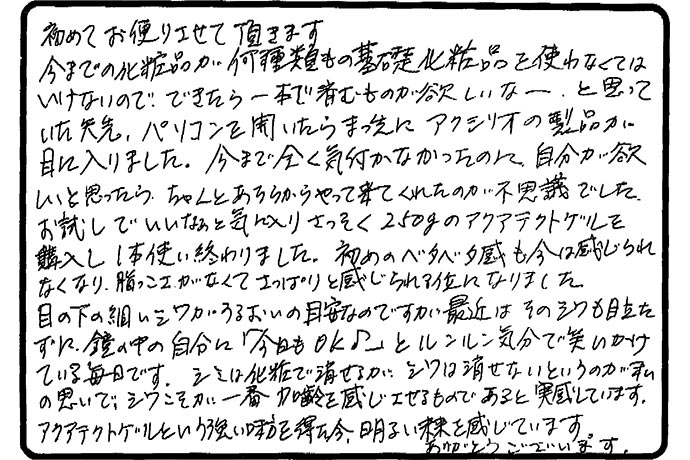 初めてお便りさせて頂きます
今までの化粧品が何種類もの基礎化粧品を使わなくては
いけないので、できたら一本で済むものが欲しいなー、と思って
いた矢先、パソコンを開いたらまっ先にアクシリオの製品が
目に入りました。今まで全く気付かなかったのに、自分が欲
しいと思ったら、ちゃんとあちらからやって来てくれたのが不思議でした。
お試しでいいなぁと気に入りさっそく250gのアクアテクトゲルを
購入し1本使い終わりました。初めのベタベタ感も今は感じられ
なくなり、脂っこさがなくてさっぱりと感じられる位になりました
目の下の細いシワがうるおいの目安なのですが最近はそのシワも目立た
ずに、鏡の中の自分に「今日もOK♪」とルンルン気分で笑いかけ
ている毎日です。シミは化粧で消せるが、シワは消せないというのが私
の思いで、シワこそが一番加齢を感じさせるものであると実感しています。
アクアテクトゲルという強い味方を得た今、明るい未来を感じています。
ありがとうございます。